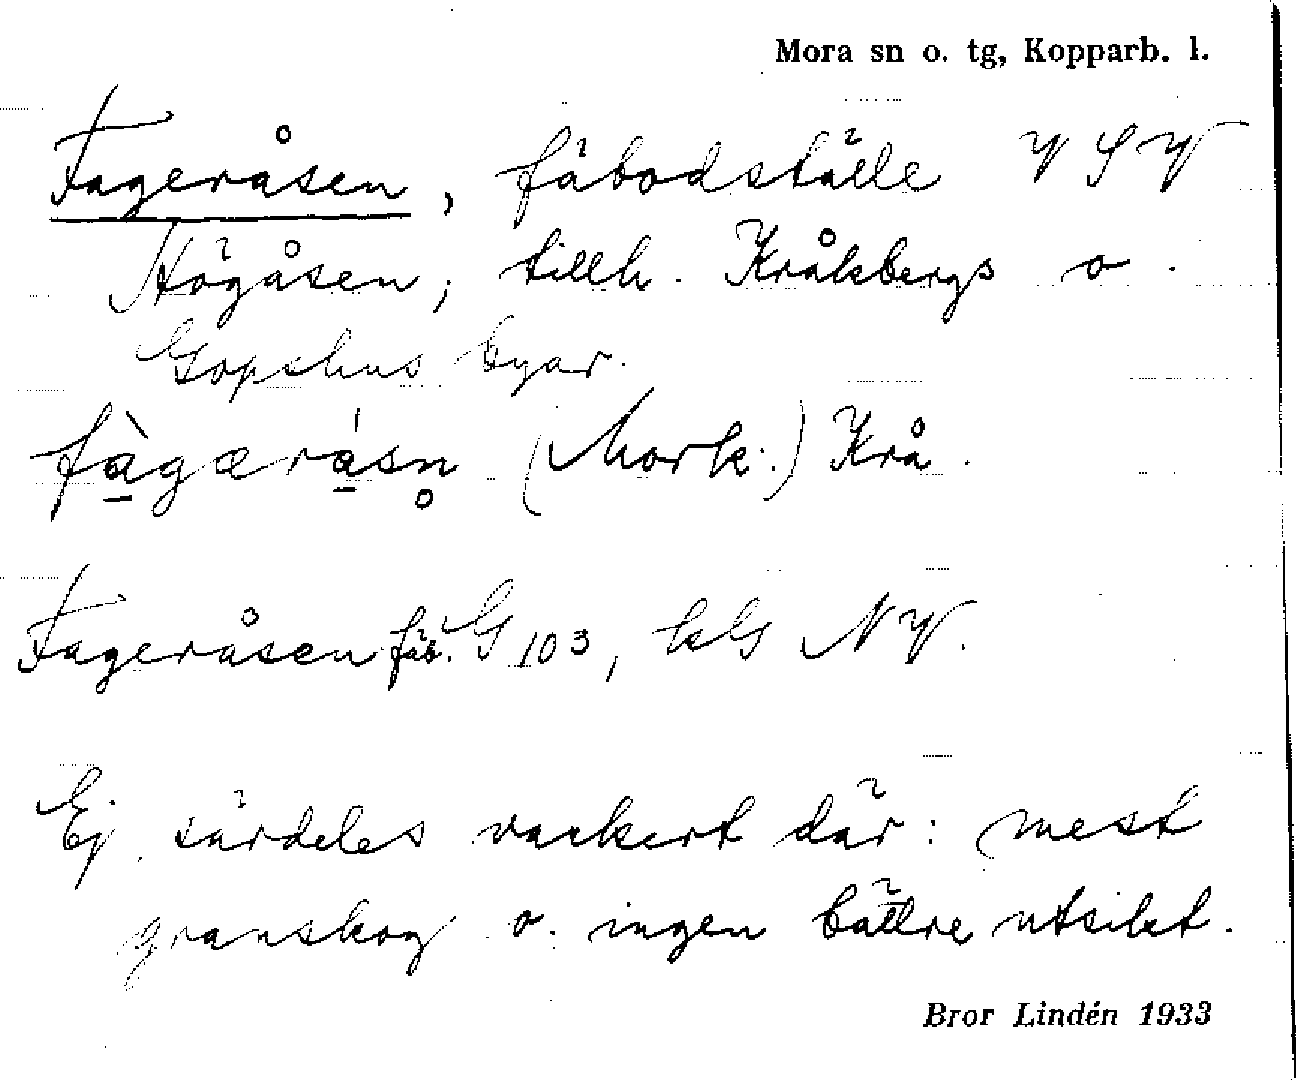 Mora sn o. tg, Kopparb. l.
Fageråsen, fäbodställe V S V
Högåsen, tillh. Kråksbergs o.
Gopshus byar.
fàgærásn̥ (Mork.) Krå.
Fageråsen fäb. G 103, kbl NV.
Ej särdeles vackert där: mest
granskog o. ingen bättre utsikt.
Bror Lindén 1933